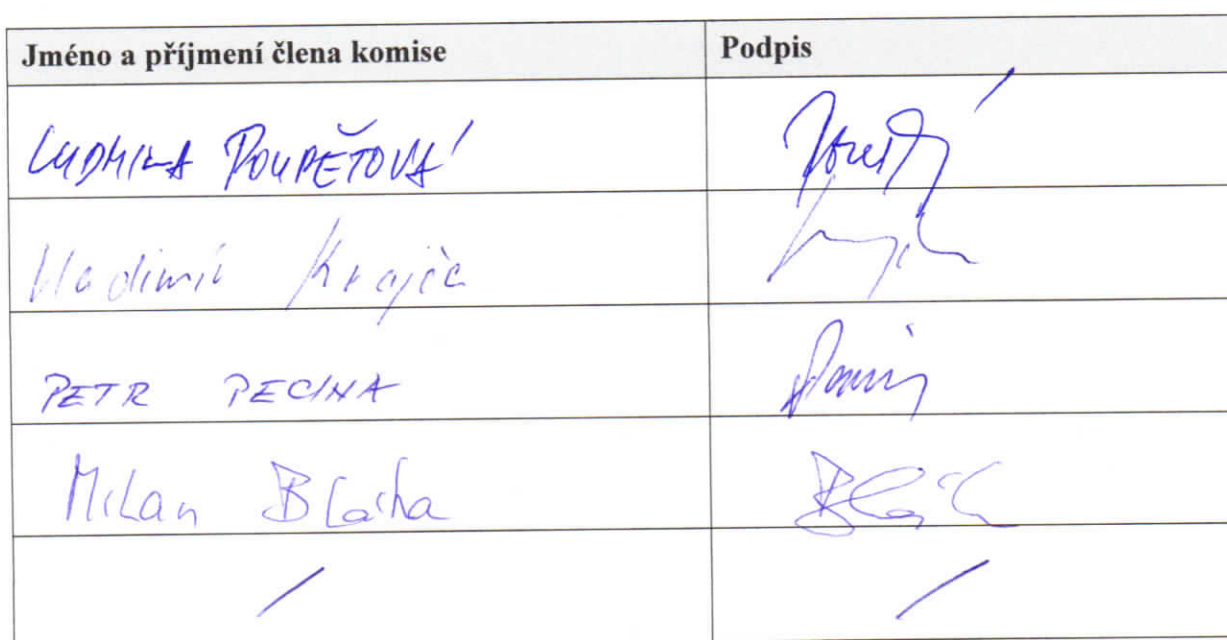 Jméno a příjmení člena komise Podpis
LUDMILA POUPĚTOVÁ
Vladimír Krajča
PETR PECINA
Milan Blaha